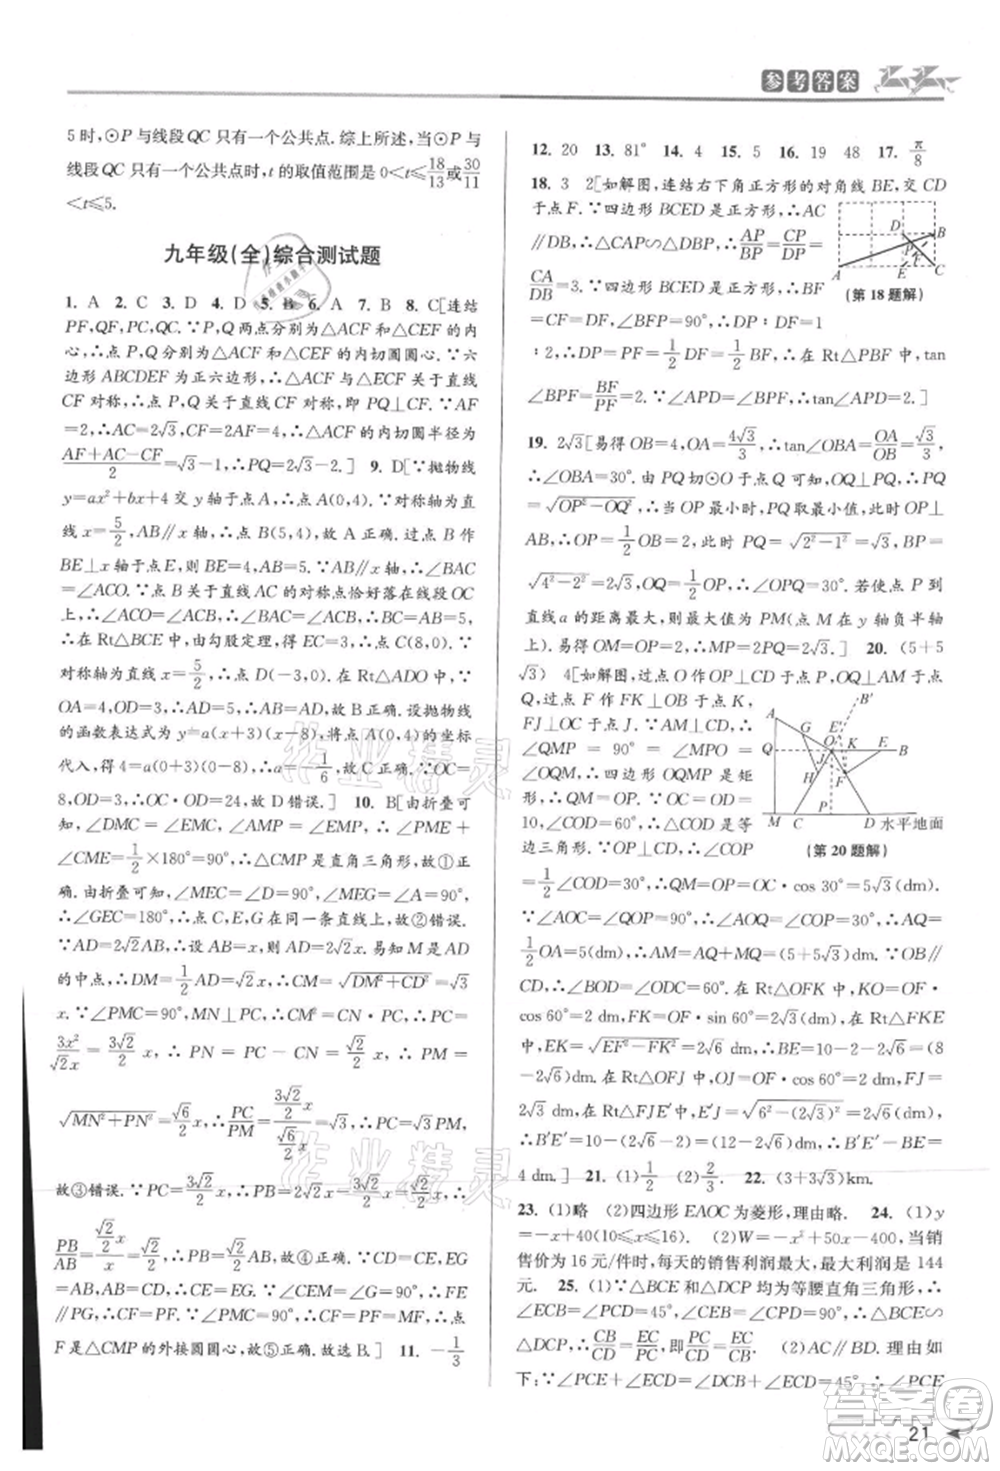 参考答案
5时,⊙P与线段QC只有一个公共点.综上所述,当⊙P与
线段QC只有一个公共点时,t的取值范围是0<t≤18/13或30/11
<t≤5.
九年级(全)综合测试题
1. A 2. C 3. D 4. D 5. B 6. A 7. B 8. C[连结
PF,QF,PC,QC.∵P,Q两点分别为△ACF和△CEF的内
心,∴点P,Q分别为△ACF和△CEF的内切圆圆心.∵六
边形ABCDEF为正六边形,∴△ACF与△ECF关于直线
CF对称,∴点P,Q关于直线CF对称,即PQ⊥CF.∵AF
=2,∴AC=2√3,CF=2AF=4,∴△ACF的内切圆半径为
(AF+AC-CF)/2=√3-1,∴PQ=2√3-2.] 9. D[∵抛物线
y=ax²+bx+4交y轴于点A,∴点A(0,4).∵对称轴为直
线x=5/2,AB∥x轴,∴点B(5,4),故A正确.过点B作
BE⊥x轴于点E,则BE=4,AB=5.∵AB∥x轴,∴∠BAC
=∠ACO.∵点B关于直线AC的对称点恰好落在线段OC
上,∴∠ACO=∠ACB,∴∠BAC=∠ACB,∴BC=AB=5,
∴在Rt△BCE中,由勾股定理,得EC=3,∴点C(8,0).∵
对称轴为直线x=5/2,∴点D(-3,0).∵在Rt△ADO中,
OA=4,DO=3,∴AD=5,故B正确.设抛物线的
函数表达式为y=a(x+3)(x-8).将点A(0,4)的坐标
代入,得4=a(0+3)(0-8),∴a=-1/6,故C正确.∵OC=
8,OD=3,∴OC·OD=24,故D错误.] 10. B[由折叠可
知,∠DMC=∠EMC,∠AMP=∠EMP,∴∠PME+
∠CME=1/2×180°=90°,∴△CMP是直角三角形,故①正
确.由折叠可知,∠MEC=∠D=90°,∠MEG=∠A=90°,
∴∠GEC=180°,∴点C,E,G在同一条直线上,故②错误.
∵AD=2√2AB,∴设AB=x,则AD=2√2x.易知M是AD
的中点,∴DM=1/2AD=√2x,∴CM=√(DM²+CD²)=√3
x.∵∠PMC=90°,MN⊥PC,∴CM²=CN·CP,∴CP=
3x²/(√2x)=(3√2/2)x,∴PN=CP-CN=(√2/2)x,∴PM=
√(MN²+PN²)=(√6/2)x,∴PC/PM=((3√2/2)x)/((√6/2)x)=√3,∴PC=√3PM,
故③错误.∵PC=(3√2/2)x,∴PB=2√2x-(3√2/2)x=(√2/2)x,∴
PB/AB=((√2/2)x)/x,∴PB=(√2/2)AB,故④正确.∵CD=CE,EG=
AB,AB=CD,∴CE=EG.∵∠CEM=∠G=90°,∴FE
∥PG,∴CF=PF.∵∠PMC=90°,∴CF=PF=MF,∴点
F是△CMP的外接圆圆心,故⑤正确.故选B.] 11. -1/3
12. 20 13. 81° 14. 4 15. 5 16. 19 48 17. π/8
18. 3 2[如解图,连结右下角正方形的对角线BE,交CD
于点F.∵四边形BCED是正方形,∴AC
∥DB,∴△CAP∽△DBP,∴AP/BP=CP/DP=
CA/DB=3.∵四边形BCED是正方形,∴BF
=CF=DF,∠BFP=90°,∴DP∶DF=1
∶2,∴DP=PF=1/2DF=1/2BF,∴在Rt△PBF中,tan
∠BPF=BF/PF=2.∵∠APD=∠BPF,∴tan∠APD=2.]
(第18题解)
19. 2√3[易得OB=4,OA=4√3/3,∴tan∠OBA=OA/OB=√3/3,
∴∠OBA=30°.由PQ切⊙O于点Q,可知OQ⊥PQ,∴PQ
=√(OP²-OQ²),∴当OP最小时,PQ取最小值,此时OP⊥
AB,∴OP=1/2OB=2,此时PQ=√(2²-1²)=√3,BP=
√(4²-2²)=2√3,∴OQ=1/2OP,∴∠OPQ=30°.若使点P到
直线a的距离最大,则最大值为PM(点M在y轴负半轴
上).此时OM=OP=2,∴PM=√3OP=2√3.] 20. (5+5
√3) 4[如解图,过点O作OP⊥CD于点P,OQ⊥AM于点
Q,过点F作FK⊥OB于点K,
FJ⊥OC于点J.∵AM⊥CD,∴
∠QMP=90°=∠MPO=
∠OQM,∴四边形OQMP是矩
形,∴QM=OP.∵OC=OD=
10,∠COD=60°,∴△COD是等
边三角形.∵OP⊥CD,∴∠COP
=1/2∠COD=30°,∴QM=OP=OC·cos 30°=5√3(dm).
∵∠AOC=∠QOP=90°,∴∠AOQ=∠COP=30°,∴AQ=
1/2OA=5(dm),∴AM=AQ+QM=(5+5√3)dm.∵OB∥
CD,∴∠BOD=∠ODC=60°.在Rt△OFK中,KO=OF·
cos 60°=2(dm),FK=OF·sin 60°=2√3(dm),在Rt△FKE
中,EK=√(EF²-FK²)=2√6(dm),∴BE=10-2-2√6=(8
-2√6)(dm).在Rt△OFJ中,OJ=OF·cos 60°=2(dm),FJ=
2√3(dm).在Rt△FJE′中,E′J=√(6²-(2√3)²)=2√6(dm),
∴B′E′=10-(2√6-2)=(12-2√6)(dm),∴B′E′-BE=
4 dm.] 21. (1)1/2 (2)√2 22. (3+3√3)km.
(第20题解)
23. (1)略 (2)四边形EAOC为菱形,理由略. 24. (1)y
=-x+40(10≤x≤16). (2)W=-x²+50x-400,当销
售价为16元/件时,每天的销售利润最大,最大利润是144
元. 25. (1)∵△BCE和△DCP均为等腰直角三角形,∴
∠ECB=∠PCD=45°,∠CEB=∠CPD=90°,∴△BCE∽
△DCP,∴CB/CD=EC/PC,∴PC/CD=EC/CB. (2)AC∥BD.理由如
下:∵∠PCE+∠ECD=∠DCB+∠ECD=45°,∴∠PCE
21